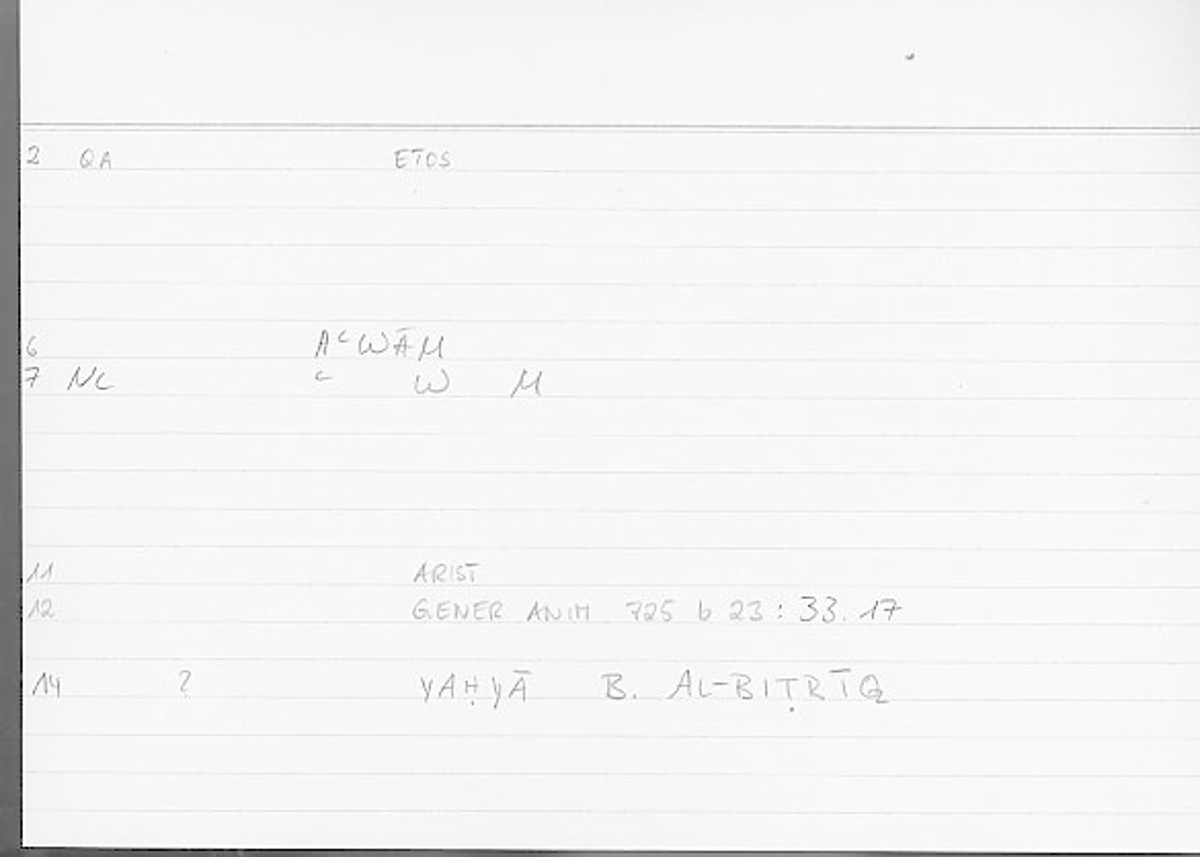 2 QA ETOS
6 AᶜWĀM
7 NC ᶜ W M
11 ARIST
12 GENER ANIM 725 b 23 : 33.17
14 ? YAḤYĀ B. AL-BIṬRĪQ